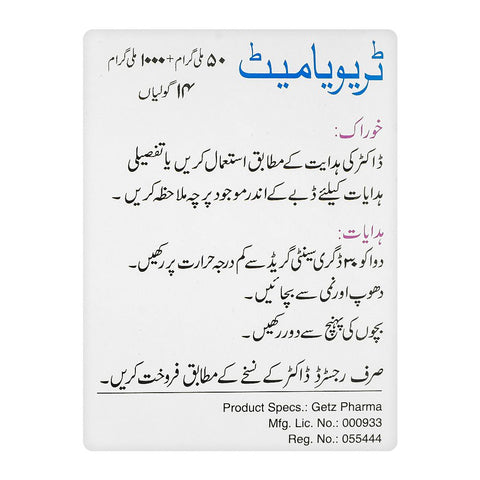 ٹریویامیٹ
۵۰ ملی گرام + ۱۰۰۰ ملی گرام
۱۴ گولیاں
خوراک:
ڈاکٹر کی ہدایت کے مطابق استعمال کریں یا تفصیلی
ہدایات کیلئے ڈبے کے اندر موجود پرچہ ملاحظہ کریں ۔
ہدایات:
دوا کو ۳۰ ڈگری سینٹی گریڈ سے کم درجہ حرارت پر رکھیں۔
دھوپ اور نمی سے بچائیں ۔
بچوں کی پہنچ سے دور رکھیں۔
صرف رجسٹرڈ ڈاکٹر کے نسخے کے مطابق فروخت کریں۔
Product Specs.: Getz Pharma
Mfg. Lic. No.: 000933
Reg. No.: 055444